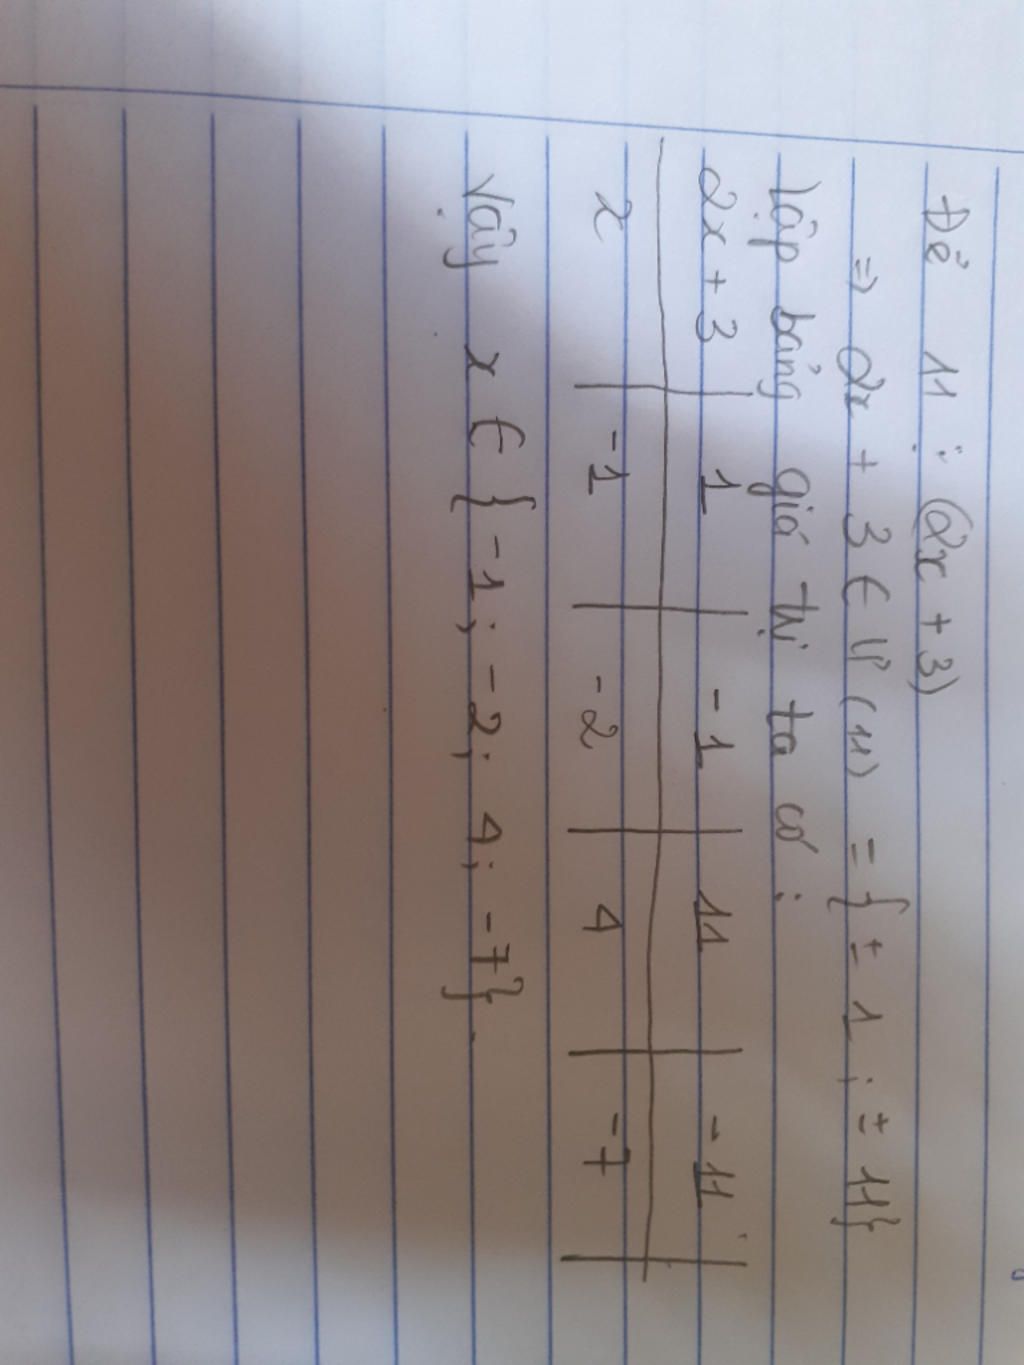 Để 11 ⋮ (2x + 3)
=> 2x + 3 ∈ Ư(11) = {± 1 ; ± 11}
Lập bảng giá trị ta có :
2x + 3 1 -1 11 -11
x -1 -2 4 -7
Vậy x ∈ {-1; -2; 4; -7}.